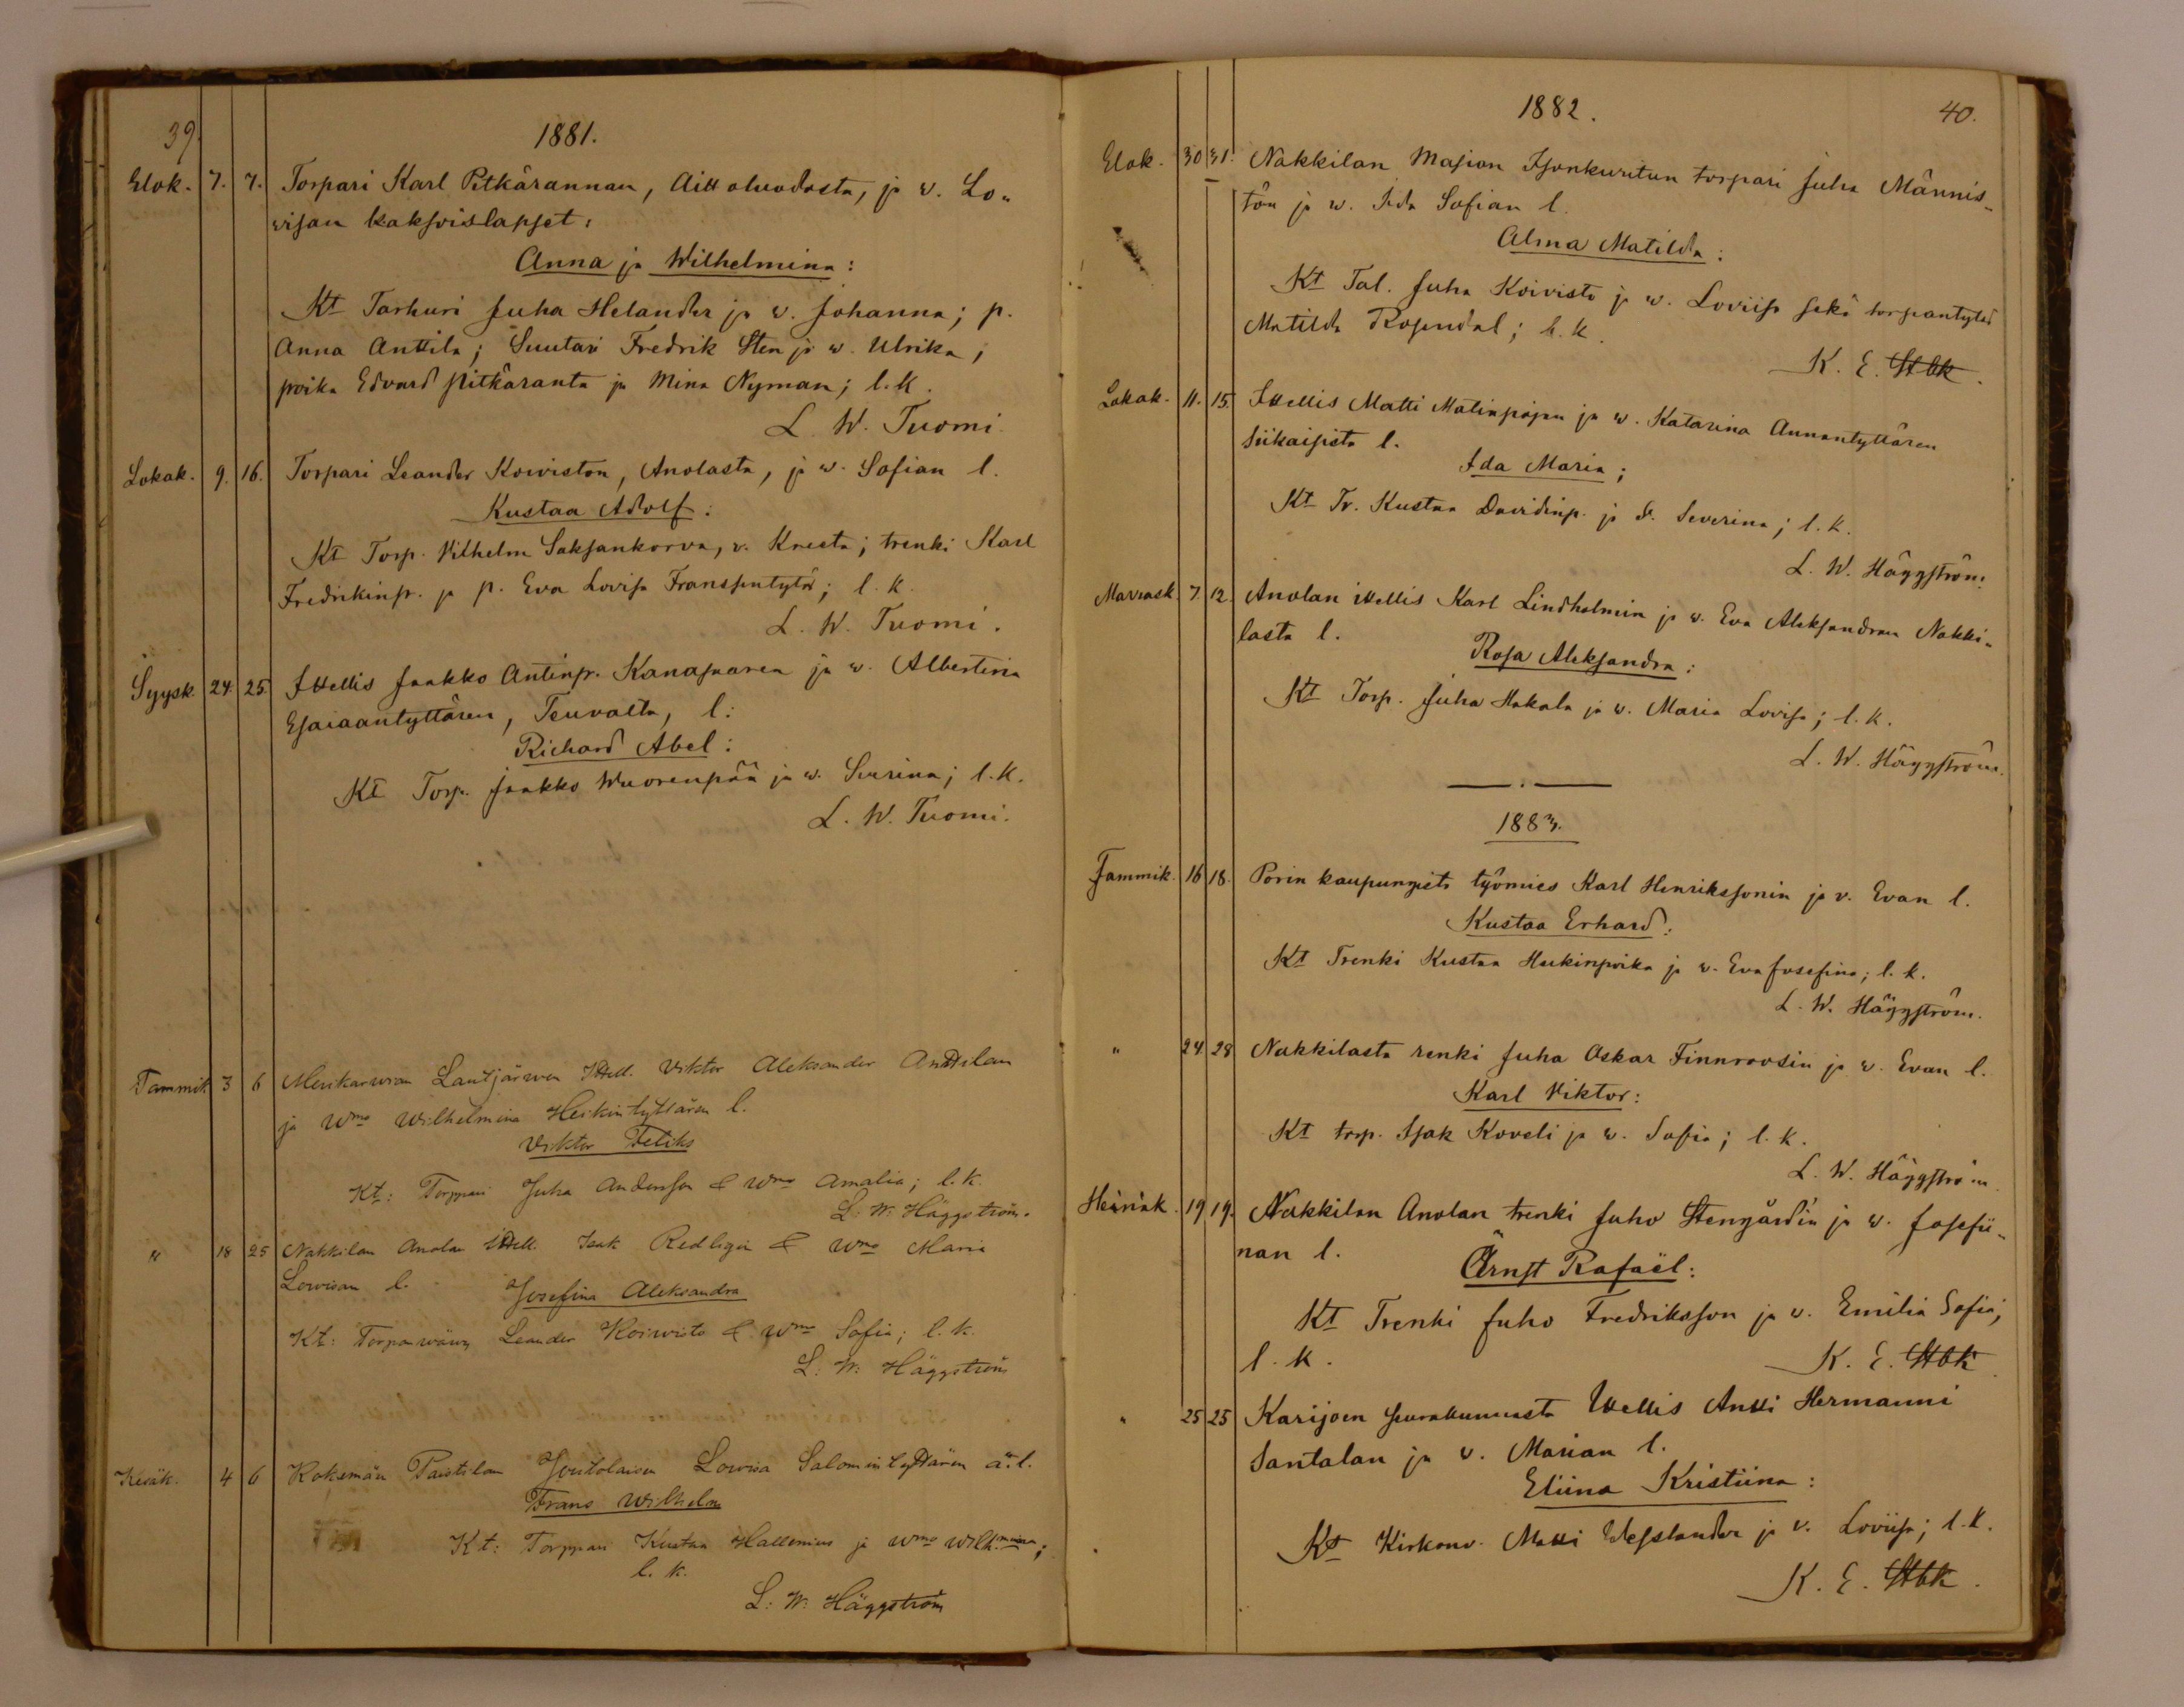 39.
1881.
Elok. 7. 7. Torpari Karl Pitkärannan, Aittoluodosta, ja v. Lo„
wisan kaksoislapset:
Anna ja Wilhelmina:
Kt Tarkuri Juha Helander ja v. Johanna; p.
Anna Anttila; Suutari Fredrik Sten ja w. Ulrika;
poika Edvard Pitkäranta ja Mina Nyman; l.k.
L. W. Tuomi.
Lokak. 9. 16. Torpari Leander Koiviston, Anolasta, ja w. Sofian l.
Kustaa Adolf:
Kt Torp. Vilhelm Saksankorva, v. Kreeta; trenki Karl
Fredrikinp. ja p. Eva Lovisa Franssintytär; l. k.
L. W. Tuomi.
Syysk. 24. 25. Ittellis Jaakko Antinp. Kanasaaren ja w. Albertina
Esaiaantyttären, Teuvalta, l:
Richard Abel:
Kt Torp. Jaakko Wuorenpää ja w. Serina; l.k.
L. W. Tuomi.
Tammik 3 6 Merikarwian Lautjärwen Ittell. Viktor Aleksander Anttilan
ja Wmo Wilhelmina Heikintyttären l.
Viktor Feliks
Kt: Torppari Juha Andersson & Wmo Amalia; l.k.
L: W: Häggström.
" 18 25 Nakkilan Anolan Ittell. Isak Redligin & Wmo Maria
Lowisan l.
Josefina Aleksandra
Kt: Torpanwäwy Leander Koiwisto & Wmo Sofia; l. k.
L: W: Häggström
Kesäk. 4 6 Kokemän Paistilan Lowisa Salomintyttären ä. l.
Frans Wilhelm
Kt: Torppari Kustaa Hallenius ja Wmo Wilh.miina;
l. k.
L: W: Häggström
1882.
40.
Elok. 30 31. Nakkilan Masian Isonkuritun torpari Juha Männis„
tön ja w. Iida Sofian l.
Alma Matilda:
Kt Tal. Juha Koivisto ja w. Loviisa sekä torpantytär
Matilda Rosendal; l. k.
K. E. Stbk.
Lokak. 11. 15. Ittellis Matti Matinpojan ja w. Katarina Annantyttären
Siikaisista l.
Ida Maria;
Kt Tr. Kustaa Davidinp. ja v. Severina; l. k.
L. W. Häggström.
Marrask. 7. 12. Anolan ittellis Karl Lindholmin ja w. Eva Aleksandran Nakki„
lasta l.
Rosa Aleksandra:
Kt Torp. Juha Hakala ja w. Maria Lovisa; l. k.
L. W. Häggström.
1883.
Tammik. 16 18. Porin kaupungista työmies Karl Henrikssonin ja v. Evan l.
Kustaa Erhard:
Kt Trenki Kustaa Heikinpoika ja w. Eva Josefina; l. k.
L. W. Häggström.
" 24. 28 Nakkilasta renki Juha Oskar Finnroosin ja w. Evan l.
Karl Viktor:
Kt torp. Isak Koveli ja w. Sofia; l. k.
L. W. Häggström
Heinäk. 19 19. Nakkilan Anolan trenki Juho Stengårdin ja w. Josefii„
nan l.
Ärnst Rafaël:
Kt Trenki Juho Fredriksson ja v. Emilia Sofia;
l. k.
K. E. Stbk
" 25 25 Karijoen seurakunnasta Ittellis Antti Hermanni
Santalan ja v. Marian l.
Eliina Kristiina:
Kt Kirkonv. Matti Wesslander ja v. Loviisa; l.k.
K. E. Stbk.